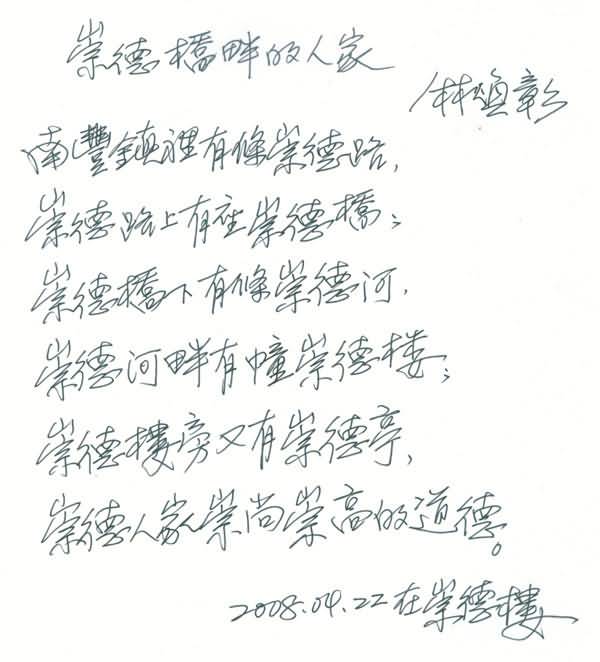 崇德橋畔的人家
林煥彰
南豐鎮裡有條崇德路，
崇德路上有座崇德橋；
崇德橋下有條崇德河，
崇德河畔有幢崇德楼；
崇德樓旁又有崇德亭，
崇德人家崇尚崇高的道德。
2008.04.22在崇德樓